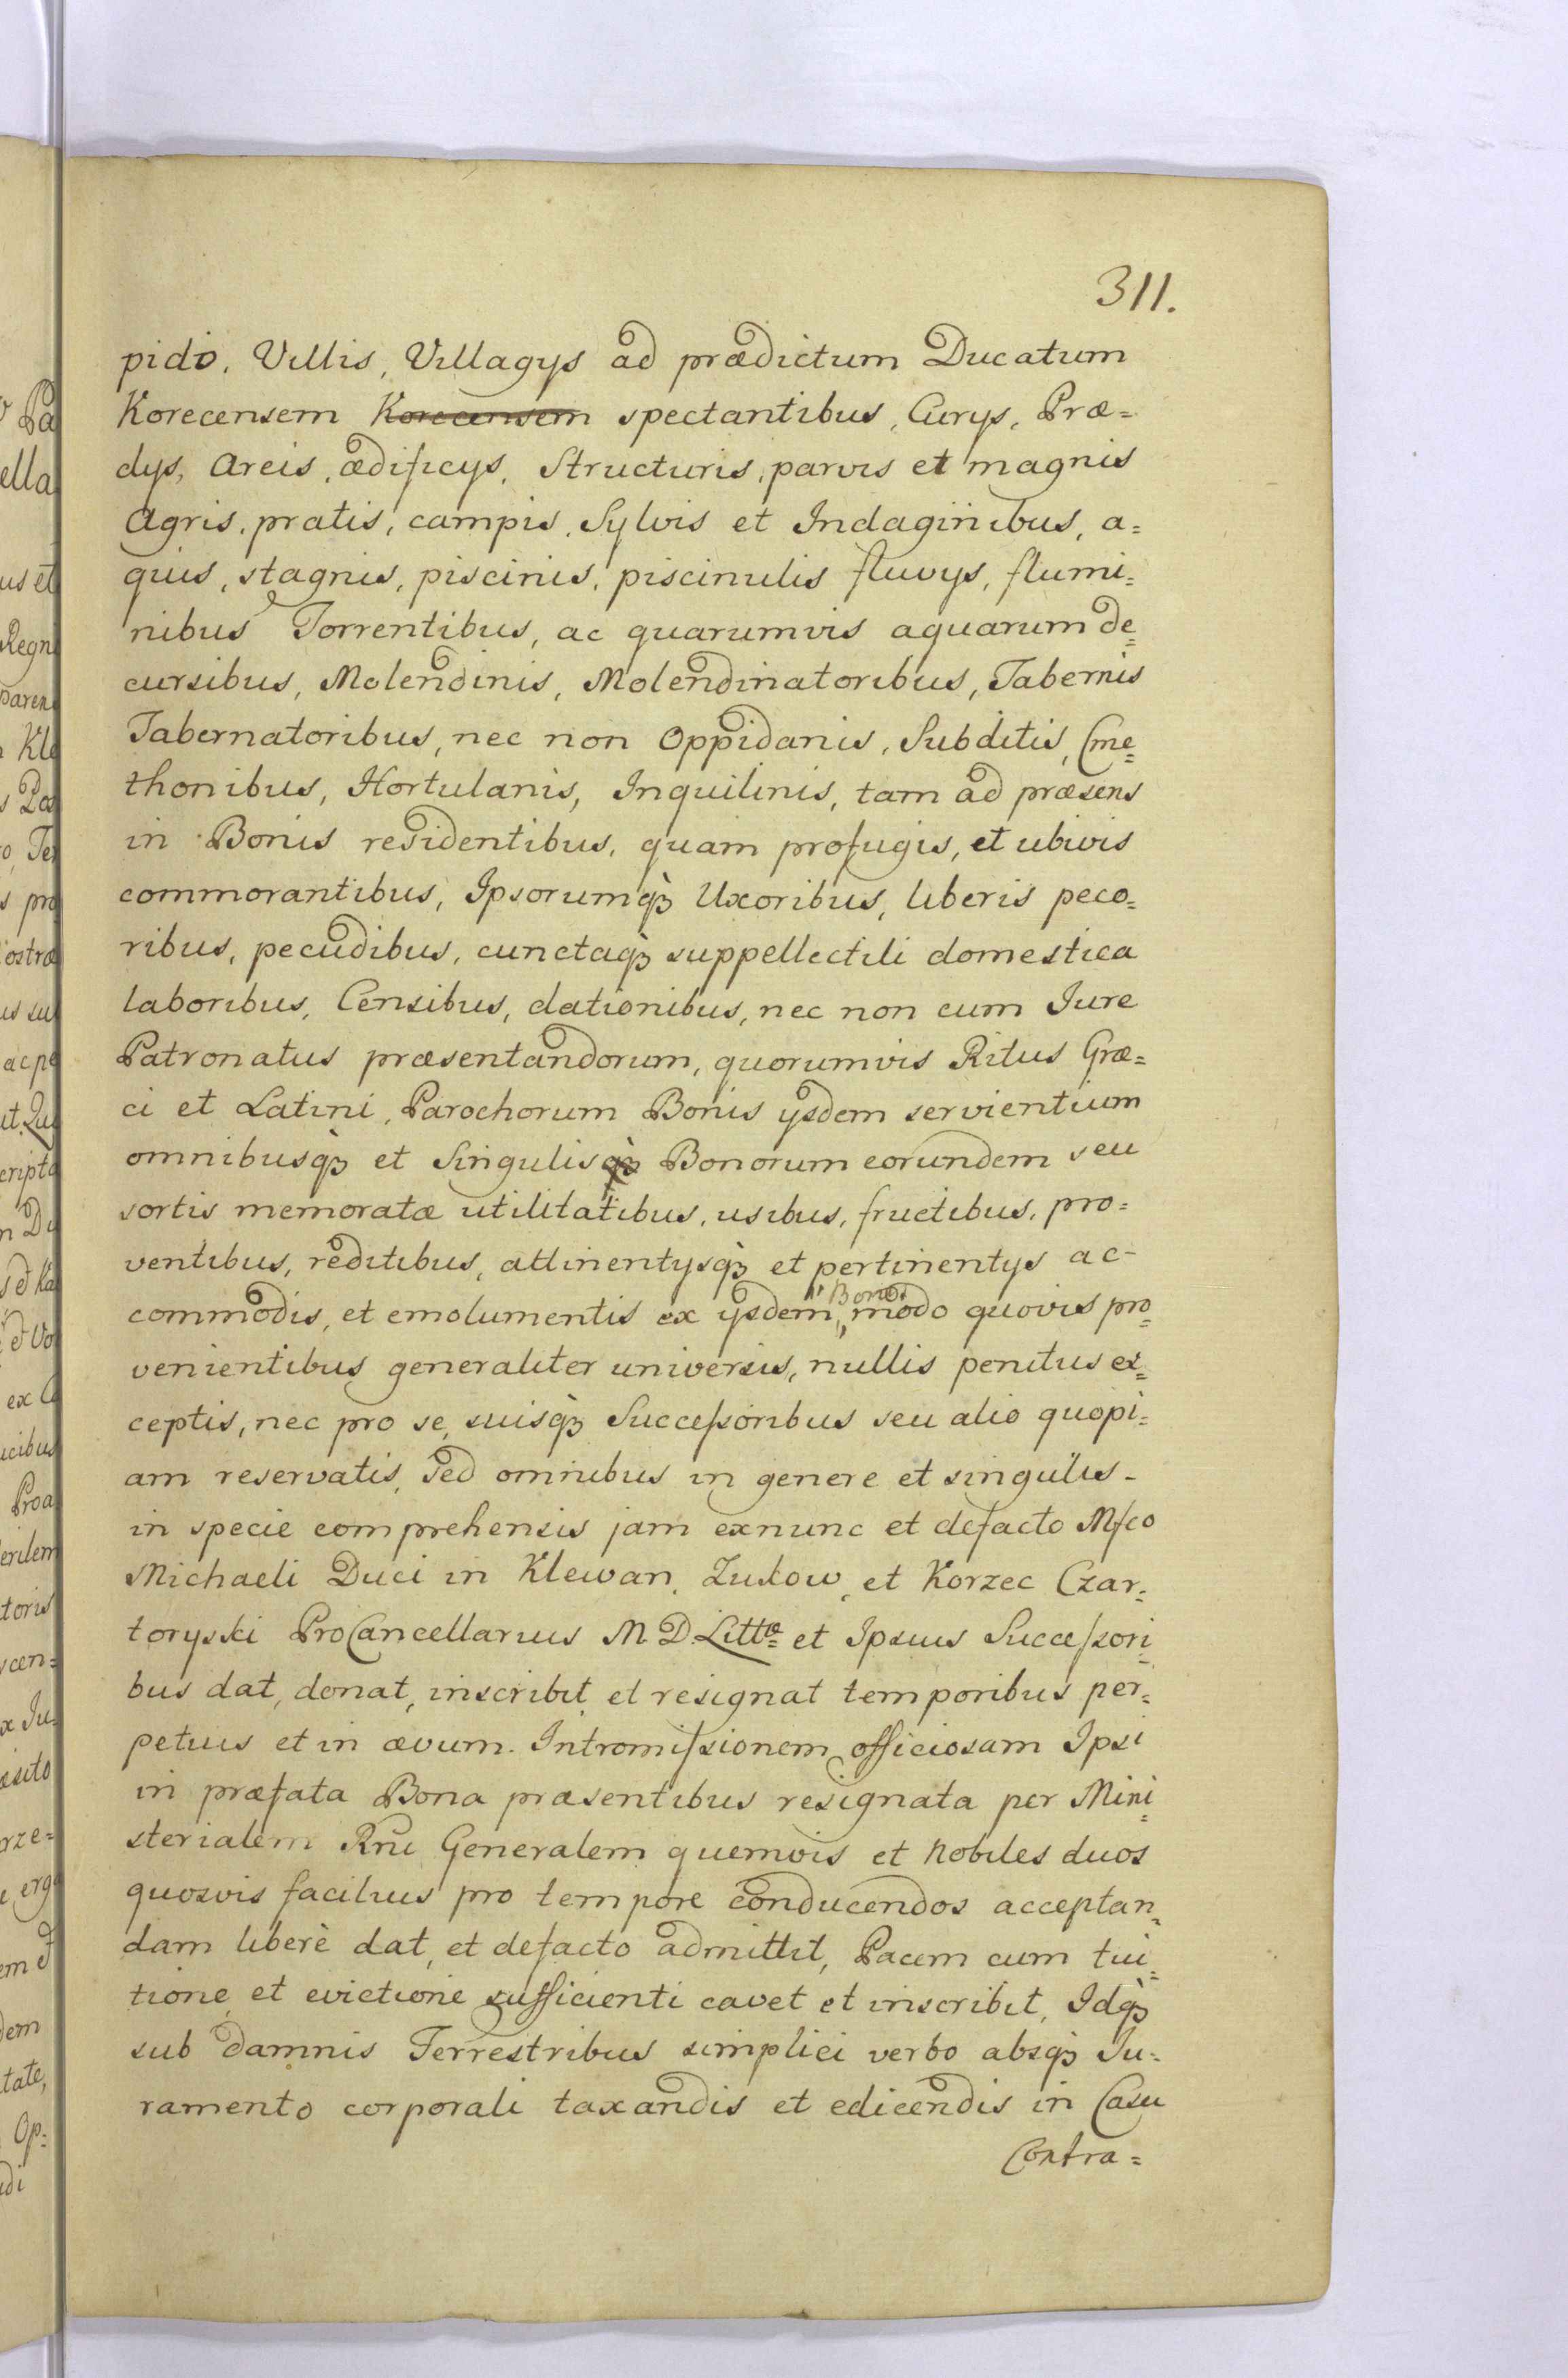 311.
pido, Villis, Villagys ad prædictum Ducatum
Korecensem Korecensem spectantibus, Curys, Præ=
dys, Areis, ædificys, Structuris, parvis et magnis
Agris, pratis, campis, Sylvis et Indaginibus, a=
quis, stagnis, piscinis, piscinulis fluvys, flumi=
nibus Torrentibus, ac quarumvis aquarum de=
cursibus, Molendinis, Molendinatoribus, Tabernis
Tabernatoribus, nec non Oppidanis, Subditis, Cme=
thonibus, Hortulanis, Inquilinis, tam ad præsens
in Bonis residentibus, quam profugis, et ubivis
commorantibus, Ipsorumq̀ꝫ Uxoribus, liberis peco=
ribus, pecudibus, cunctaq̀ꝫ suppellectili domestica
laboribus, Censibus, dationibus, nec non cum Jure
Patronatus præsentandorum, quorumvis Ritus Græ=
ci et Latini, Parochorum Bonis ysdem servientium
omnibusq̀ꝫ et Singulisq̀ꝫ Bonorum eorundem seu
sortis memoratæ utilitatibus, usibus, fructibus, pro=
ventibus, reditibus, attinentysq̀ꝫ et pertinentys ac-
commodis, et emolumentis ex ysdem Bonis modo quovis pro=
venientibus generaliter universis, nullis penitus ex=
ceptis, nec pro se, suisq̀ꝫ Succeſsoribus seu alio quopi=
am reservatis, sed omnibus in genere et singulis-
in specie comprehensis jam exnunc et defacto Mfco
Michaeli Duci in Klewan, Zukow, et Korzec Czar=
toryski ProCancellarius M. D. Littæ et Ipsius Succeſsori=
bus dat, donat, inscribit et resignat temporibus per=
petuis et in ævum. Intromiſsionem officiosam Ipsi
in præfata Bona præsentibus resignata per Mini=
sterialem Rni Generalem quemvis et Nobiles duos
quosvis facilius pro tempore conducendos acceptan=
dam liberè dat, et defacto admittit, Pacem cum tui=
tione et evictione sufficienti cavet et inscribit, Idq̀ꝫ
sub damnis Terrestribus simplici verbo absq̀ꝫ Ju=
ramento corporali taxandis et edicendis in Casu
Contra=